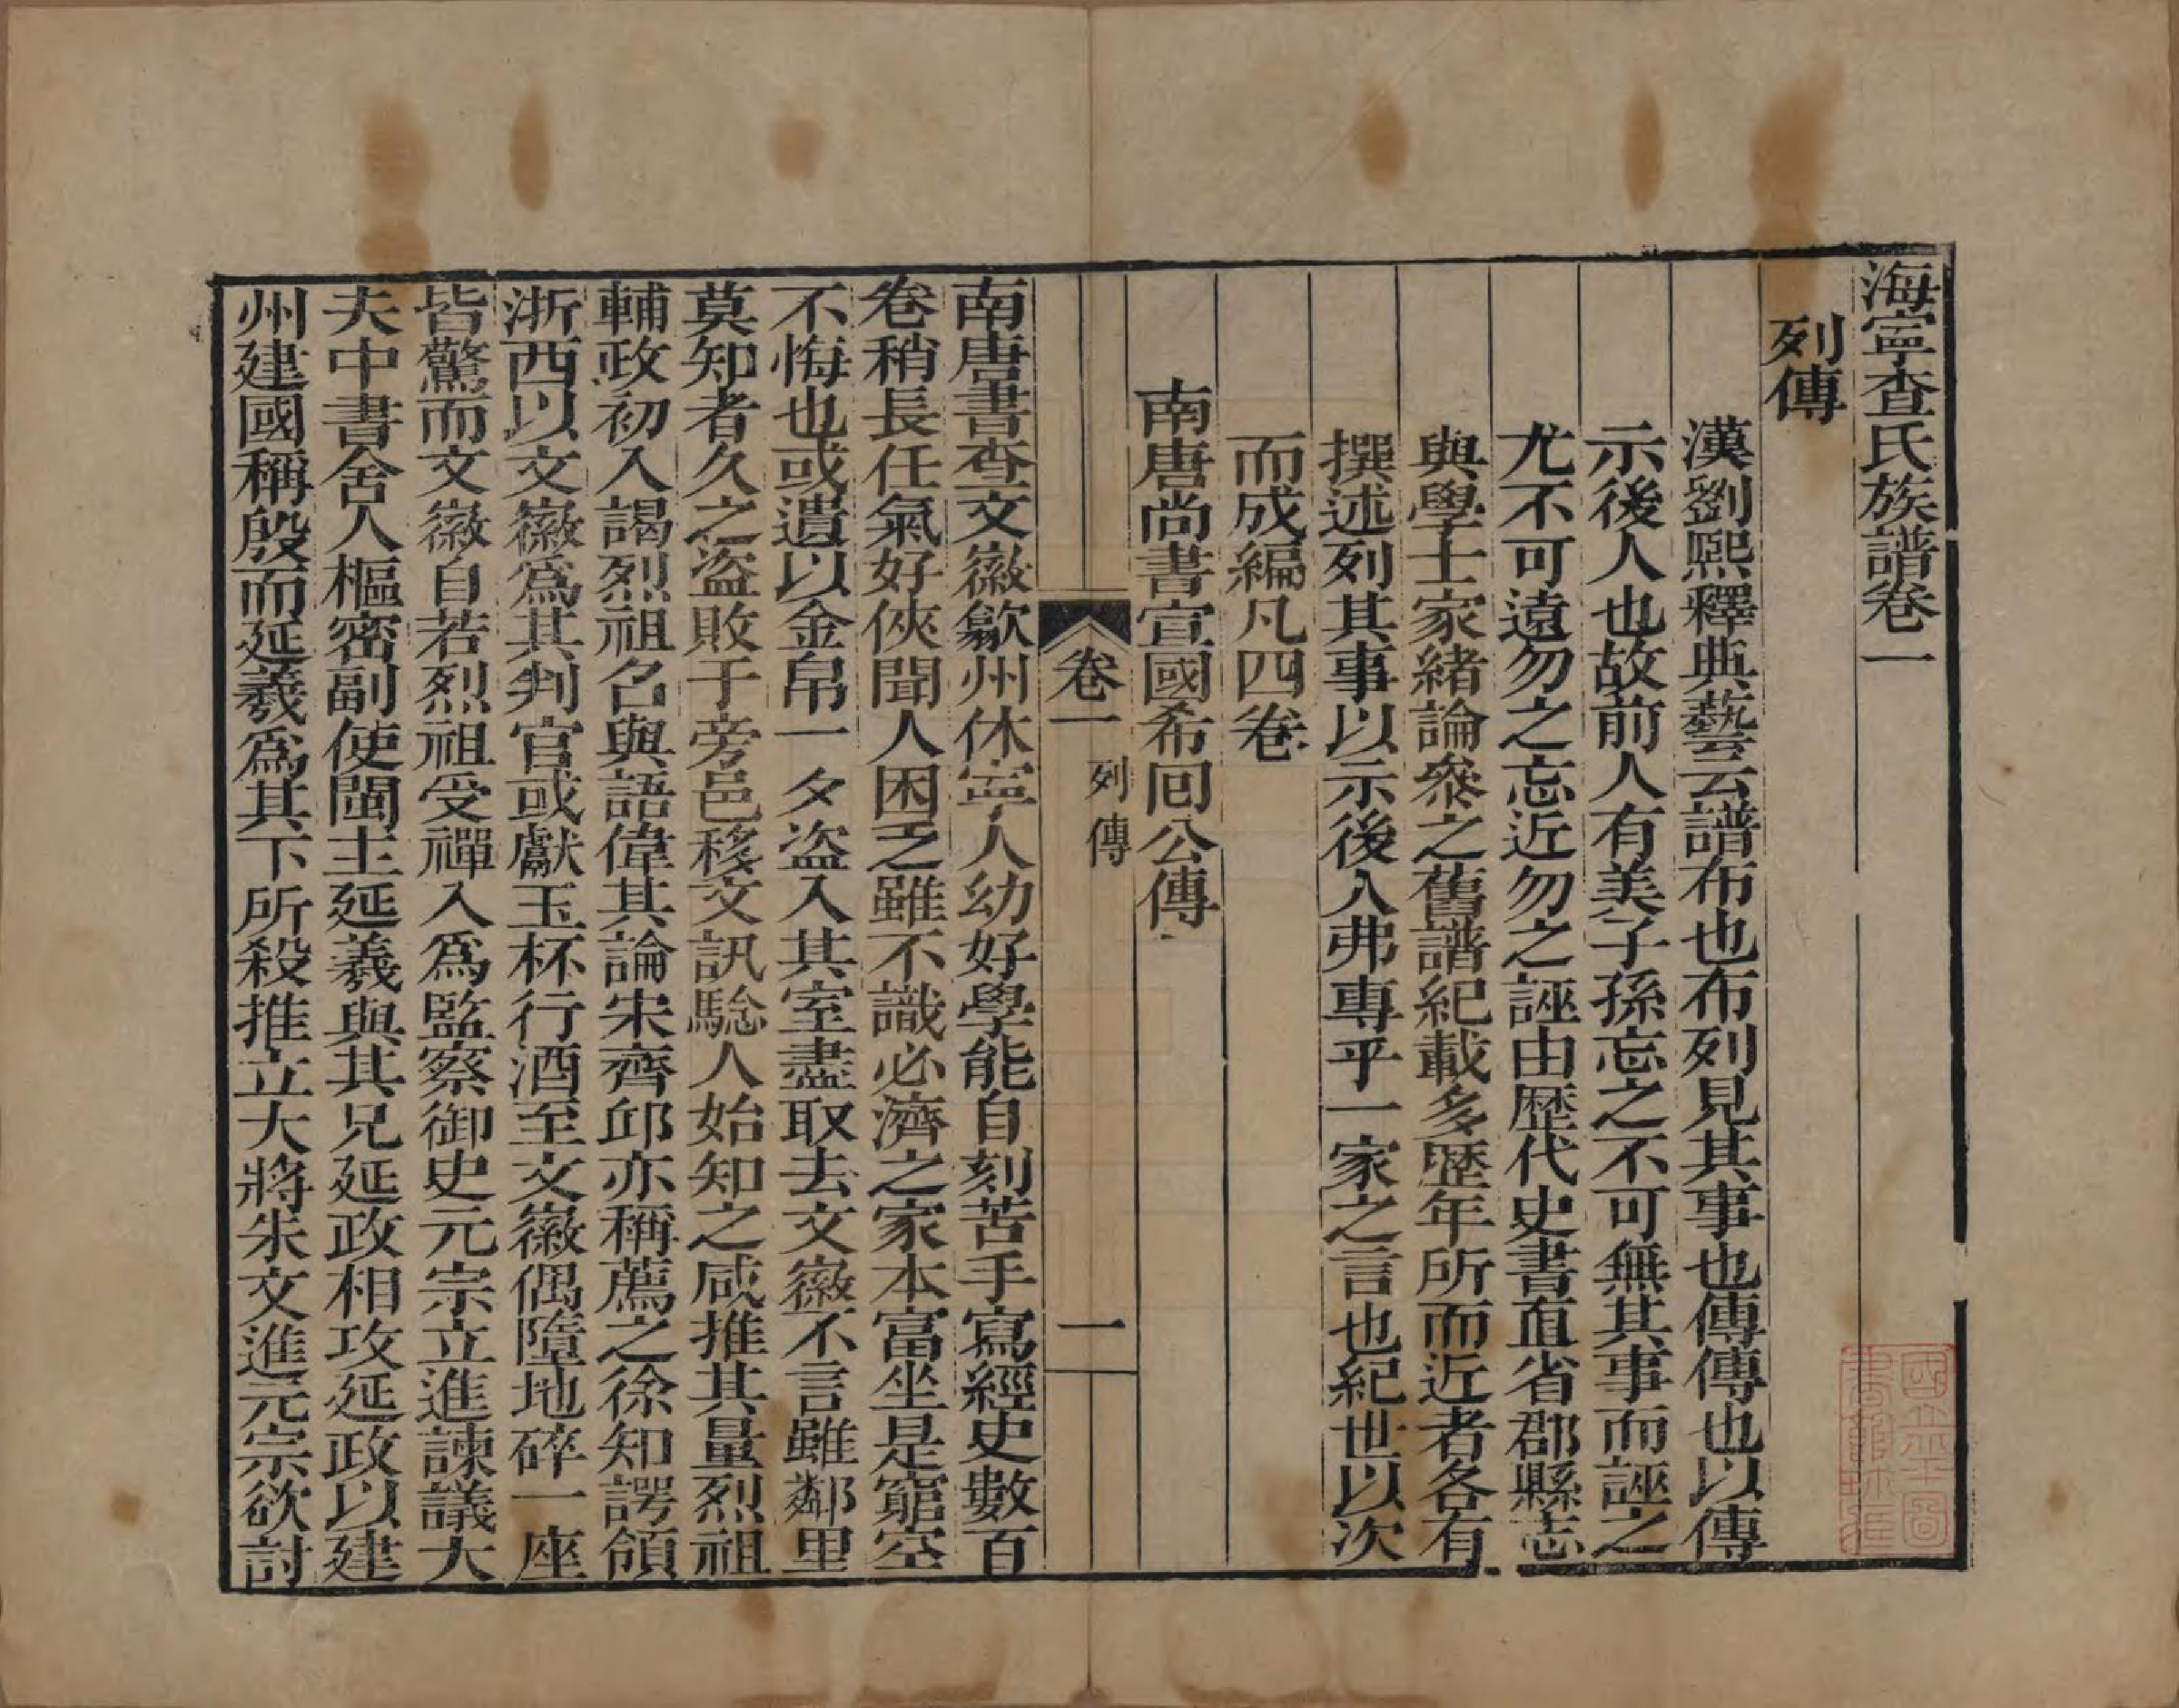 海寧查氏族譜卷一
列傳
漢劉熙釋典藝云譜布也布列見其事也傳傳也以傳
示後人也故前人有美子孫忘之不可無其事而誣之
尤不可遠勿之忘近勿之誣由歷代史書直省郡縣志
與學士家緒論叅之舊譜紀載多歷年所而近者各有
撰述列其事以示後人弗專乎一家之言也紀世以次
而成編凡四卷
南唐尚書宣國希囘公傳
卷一 列傳 一
南唐書查文徽歙州休寧人幼好學能自刻苦手寫經史數百
卷稍長任氣好俠聞人困乏雖不識必濟之家本富坐是窮空
不悔也或遺以金帛一夕盜入其室盡取去文徽不言雖鄰里
莫知者久之盜敗于旁邑移文訊驗人始知之咸推其量烈祖
輔政初入謁烈祖名與語偉其論宋齊邱亦稱薦之徐知諤領
浙西以文徽爲其判官或獻玉杯行酒至文徽偶墮地碎一座
皆驚而文徽自若烈祖受禪入爲監察御史元宗立進諫議大
夫中書舍人樞密副使閩主延羲與其兄延政相攻延政以建
州建國稱殷而延羲爲其下所殺推立大將朱文進元宗欲討
國立
圖
書館